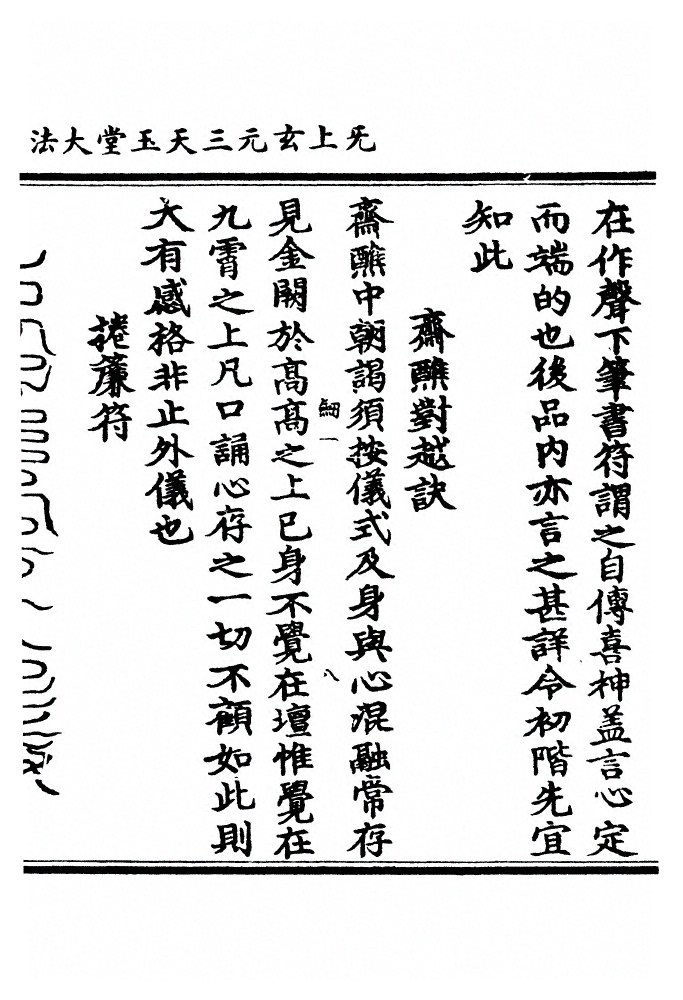 法大堂玉天三元玄上旡
在作聲下筆書符謂之自傳喜神盖言心定
而端的也後品内亦言之甚詳令初階先宜
知此
齋醮對越訣
齋醮中朝謁須按儀式及身與心混融常存
細一
八
見金闕於髙髙之上已身不覺在壇惟覺在
九霄之上凡口誦心存之一切不顧如此則
大有感格非止外儀也
捲簾符